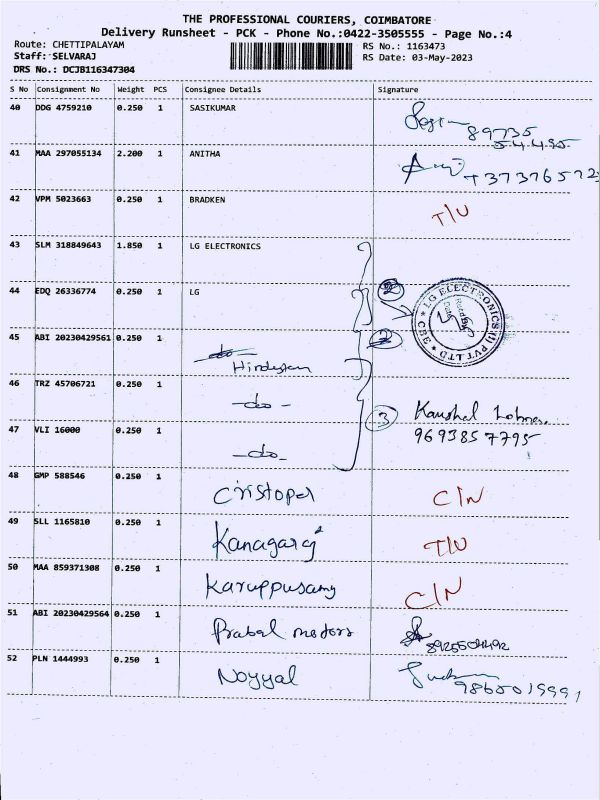 THE PROFESSIONAL COURIERS, COIMBATORE
Delivery Runsheet - PCK - Phone No.:0422-3505555 - Page No.:4
Route: CHETTIPALAYAM RS No.: 1163473
Staff: SELVARAJ RS Date: 03-May-2023
DRS No.: DCJB116347304
S No Consignment No Weight PCS Consignee Details Signature
40 DDG 4759210 0.250 1 SASIKUMAR
89735
54495
41 MAA 297055134 2.200 1 ANITHA
42 VPM 5023663 0.250 1 BRADKEN T/U
43 SLM 318849643 1.850 1 LG ELECTRONICS
44 EDQ 26336774 0.250 1 LG 2
LG ELECTRONICS (I) PVT.LTD CBE
45 ABI 20230429561 0.250 1 do
Hindustan
46 TRZ 45706721 0.250 1 -do- 3 Kaushal
47 VLI 16000 0.250 1 -do- 9693857795
48 GMP 588546 0.250 1 Cristoper C/N
49 SLL 1165810 0.250 1 Kanagaraj T/U
50 MAA 859371308 0.250 1 Karuppusamy C/N
51 ABI 20230429564 0.250 1 Prabal motors
52 PLN 1444993 0.250 1 Noyyal
9865019991